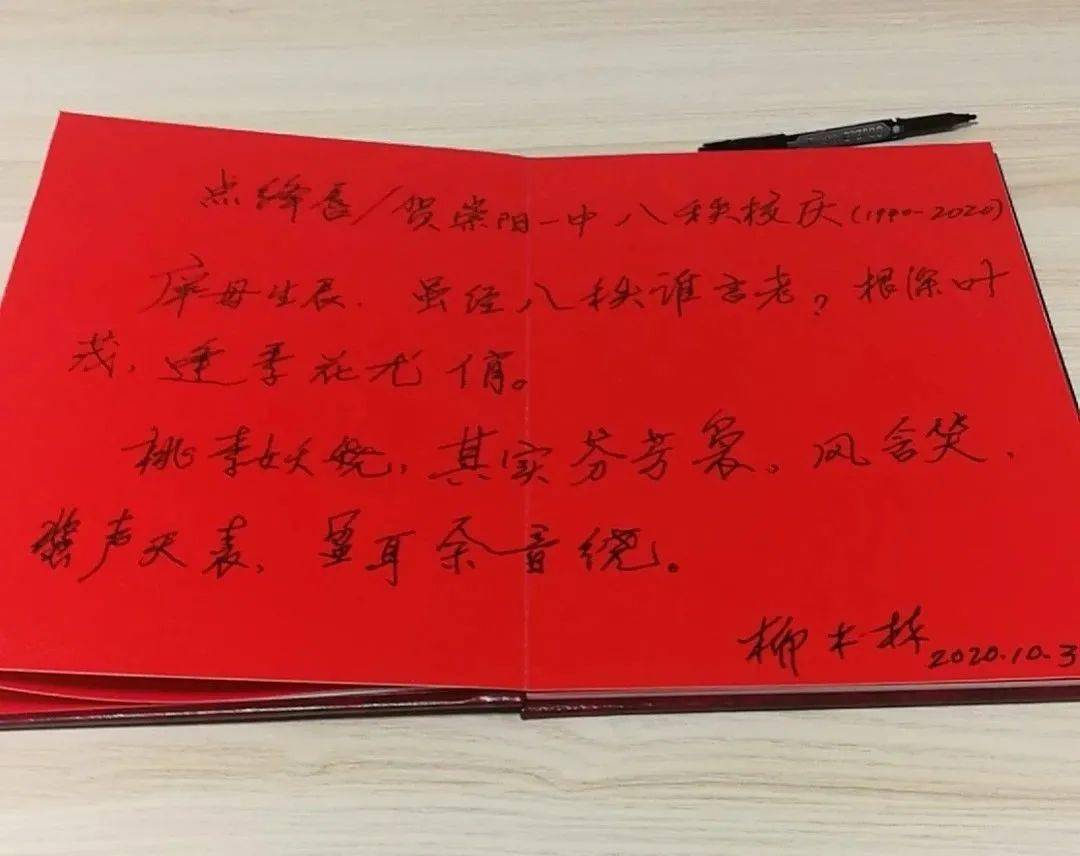 点绛唇/贺崇阳一中八秩校庆(1940-2020)
庠母生辰.虽经八秩谁言老?根深叶
茂,逢季花尤俏。
桃李妖娆,其实芬芳袅。风含笑,
声天表,盈耳余音绕。
柳木林
2020.10.3